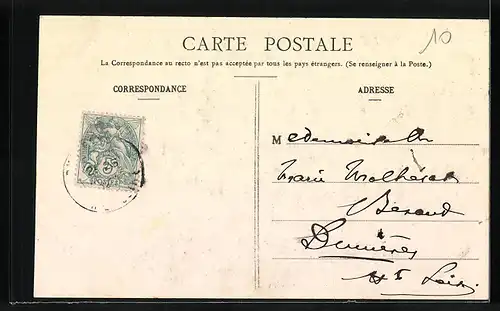 10
CARTE POSTALE
La Correspondance au recto n'est pas acceptée par tous les pays étrangers. (Se renseigner à la Poste.)
CORRESPONDANCE
ADRESSE
Mademoiselle
Marie
Dunières
Hte Loire
5